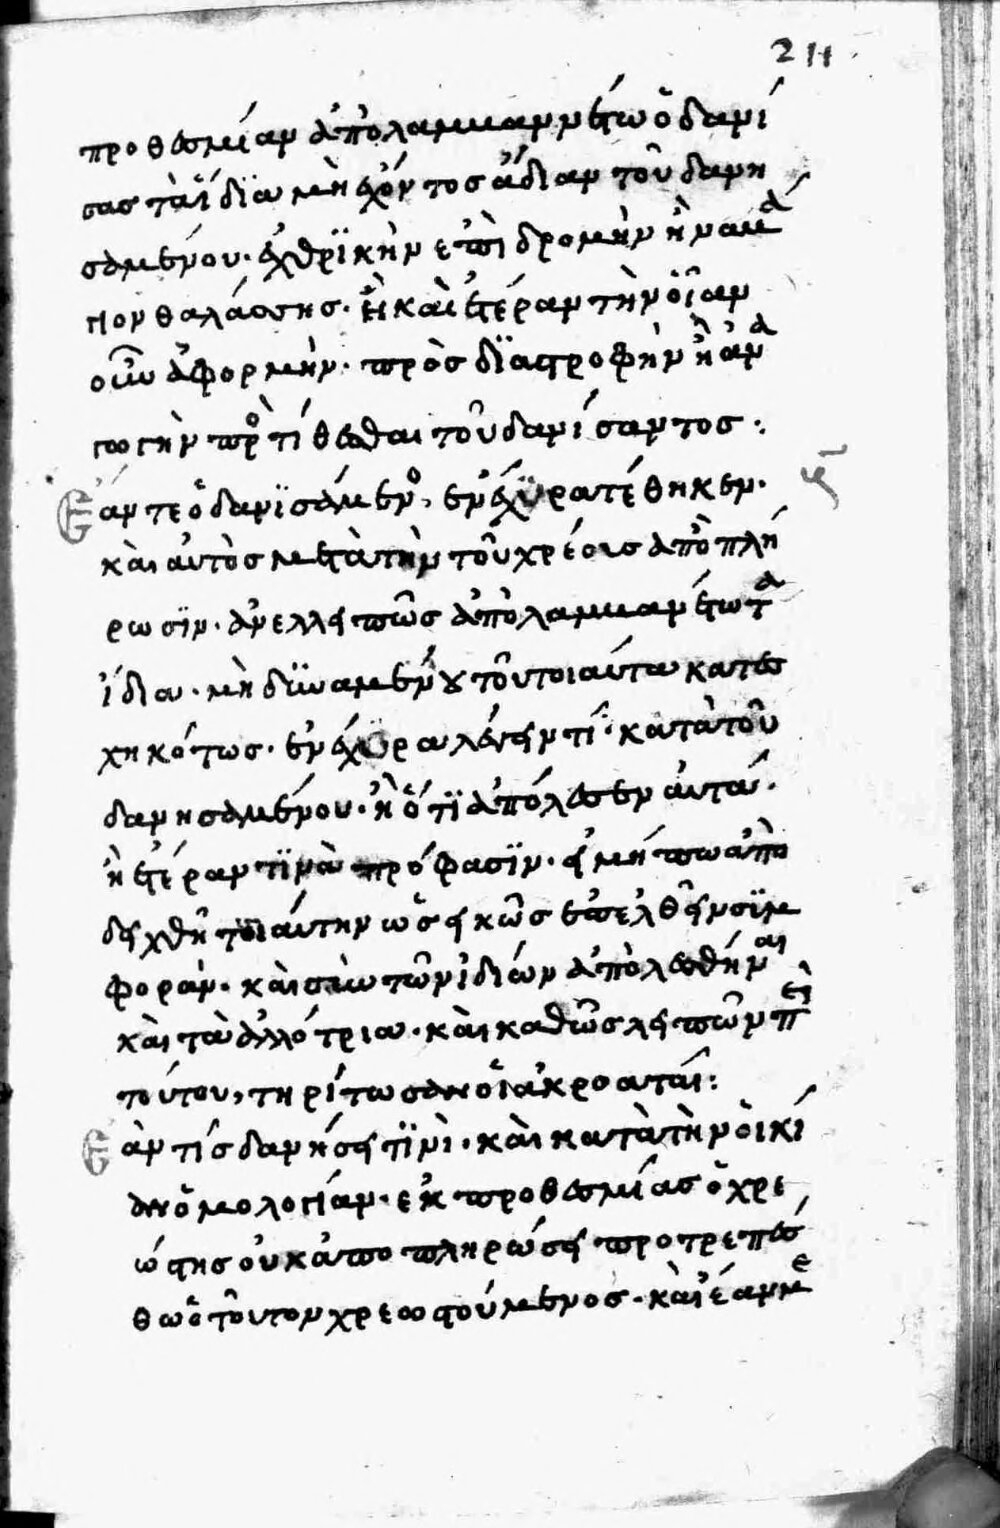 211
προθεσμίαν ἀπολαμβαννέτω ὁ δανί
σας τὰ ἴδια μὴ ἔχοντος ἄδιαν τοῦ δανη
σαμένου. ἐχθρϊκὴν ἐπὶ δρομὴν ἢ ναυά
γιον θαλάσσης. ἢ καὶ ἑτέραν τὴν οἵαν
οὖν ἀφορμὴν. πρὸς δϊαστροφὴν ἢ ἀνα
γωγὴν προτίθεσθαι τοῦ δανίσαντος:
Ἐάν τε ὁ δανϊσάμενος, ἐνέχϋρα τέθηκεν.
καὶ αὐτὸς μετὰ τὴν τοῦ χρέους ἀποπλή
ρωσϊν. ἀνελλειπῶς ἀπολαμβανέτω τὰ
ἴδια. μὴ δϋναμένου τοῦ τοιαύτα κατεσ
χηκότως. ἐνέχϋρα λέγειν τί. κατὰ τοῦ
δανησαμένου. ἢ ὅτϊ ἀπόλεσεν αὐτά.
ἢ ἑτέραν τϊνὰ πρόφασϊν. εἰ μήπω ἀπο
δειχθῆ τοιαύτην ὡς εἰκῶς ἐπελθεῖν σϋμ
φοράν. καὶ σὺν τῶν ἰδιών ἀπολεσθήναι
καὶ τὰ ἀλλότρια. καὶ καθῶς λειπῶν περὶ
τούτου, τηρίτωσαν οἱ ἀκροαταί:
Ἐὰν τίς δανήσει τϊνὶ. καὶ κατὰ τὴν οἰκί
αν ὁμολογίαν. ἐκ προθεσμίας ὁ χρε
ώστης οὐκ ἀποπληρώσει προτρεπέσ
θω ὁ τοῦτον χρεωστούμενος. καὶ ἐάν με